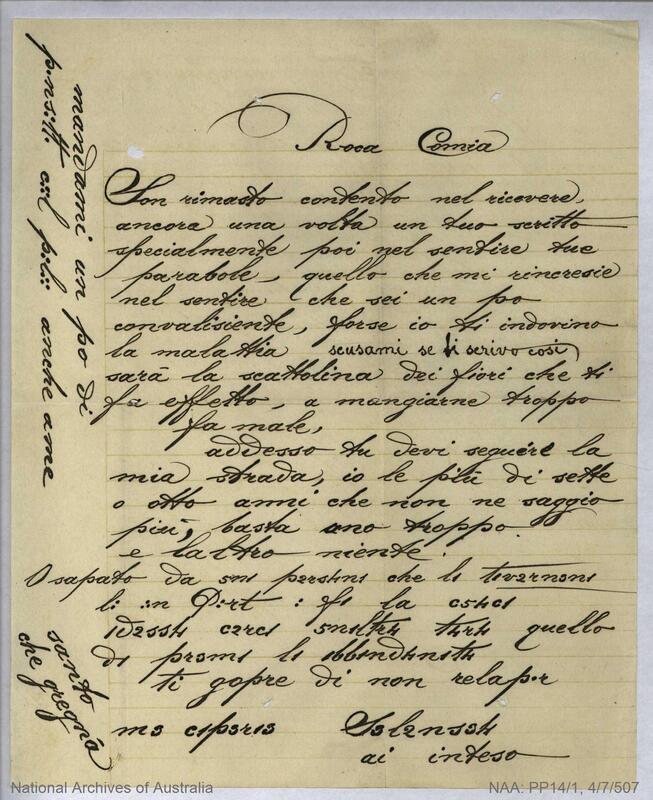 Rosa Comia
Son rimasto contento nel ricevere,
ancora una volta un tuo scritto
specialmente poi nel sentire tue
parabole, quello che mi rincresie
nel sentire che sei un po
convalisiente, forse io ti indovino
la malattia scusami se ti scrivo cosi
sarà la scattolina dei fiori che ti
fa effetto, a mangiarne troppo
fa male,
addesso tu devi seguire la
mia strada, io le più di sette
o otto anni che non ne saggio
più, basta uno troppo
e laltro niente.
O sapato da che
li quello
di
ti di non
ai inteso
mandami un po di
anche ame
santo
che gregna
National Archives of Australia
NAA: PP14/1, 4/7/507